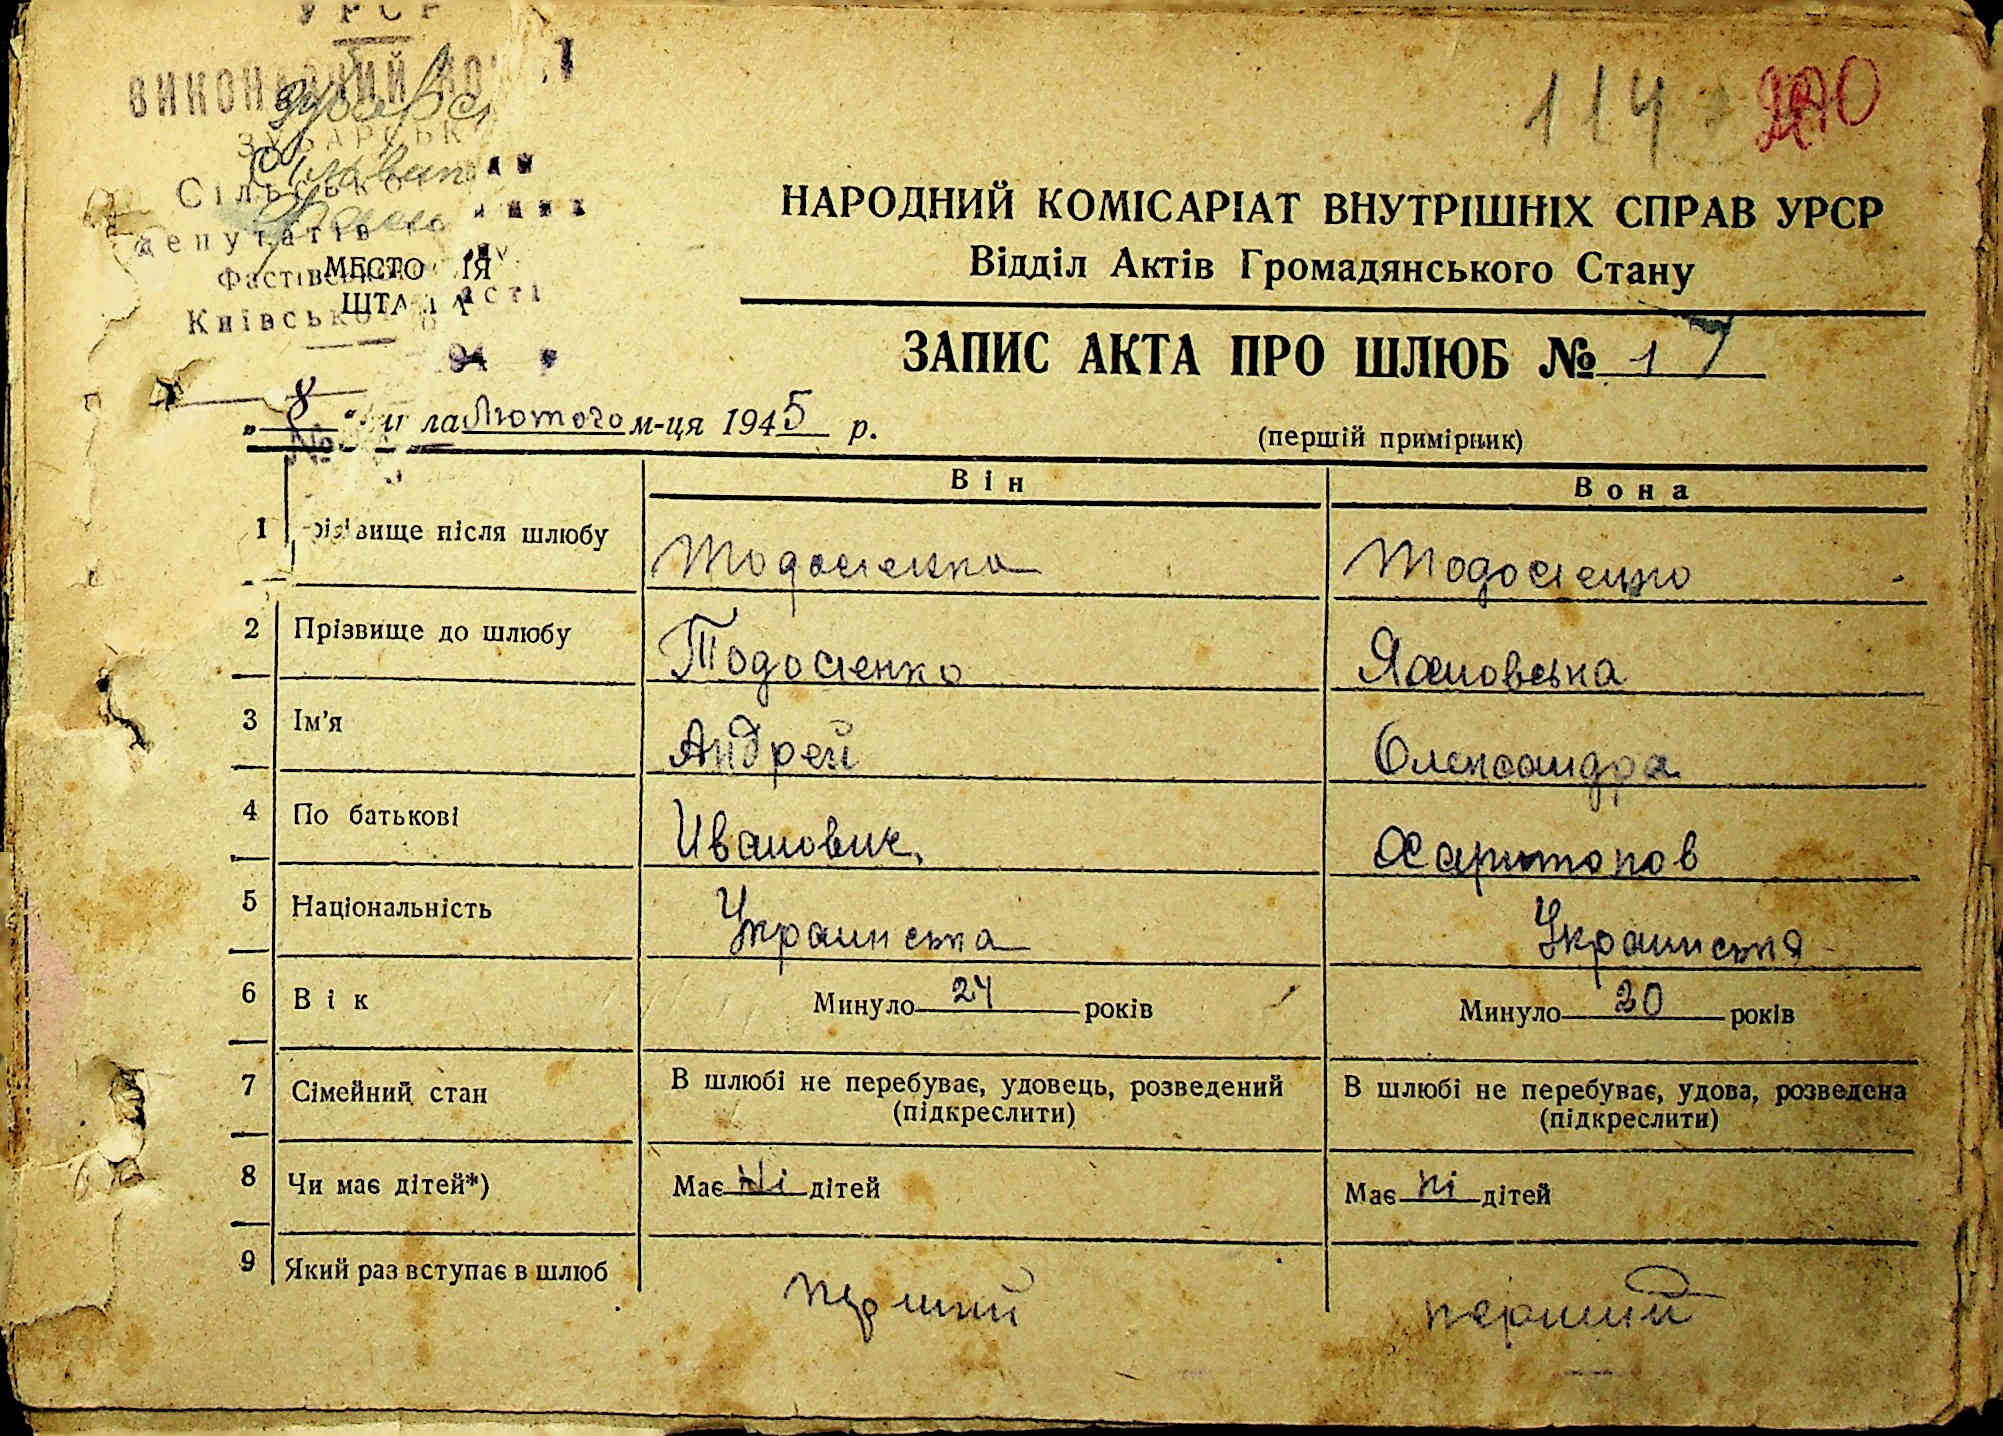 УРСР
ВИКОНАВЧИЙ
ЗУБАРСЬК
Сільсько
депутатів
Фастівс
Київсько асті
МЕСТО ІЯ
ШТА
114
НАРОДНИЙ КОМІСАРІАТ ВНУТРІШНІХ СПРАВ УРСР
Відділ Актів Громадянського Стану
ЗАПИС АКТА ПРО ШЛЮБ № 17
„ 8 “ ла Лютого м-ця 1945 р.
(перший примірник)
Він Вона
1 різвище після шлюбу Тодосіенко Тодосіенко
2 Прізвище до шлюбу Тодосіенко Яхновська
3 Ім'я Андрей Олександра
4 По батькові Иванович, Харитонов
5 Національність Украинська Украинська
6 Вік Минуло 24 років Минуло 20 років
7 Сімейний стан В шлюбі не перебуває, удовець, розведений (підкреслити) В шлюбі не перебуває, удова, розведена (підкреслити)
8 Чи має дітей*) Має ні дітей Має ні дітей
9 Який раз вступає в шлюб перший перший